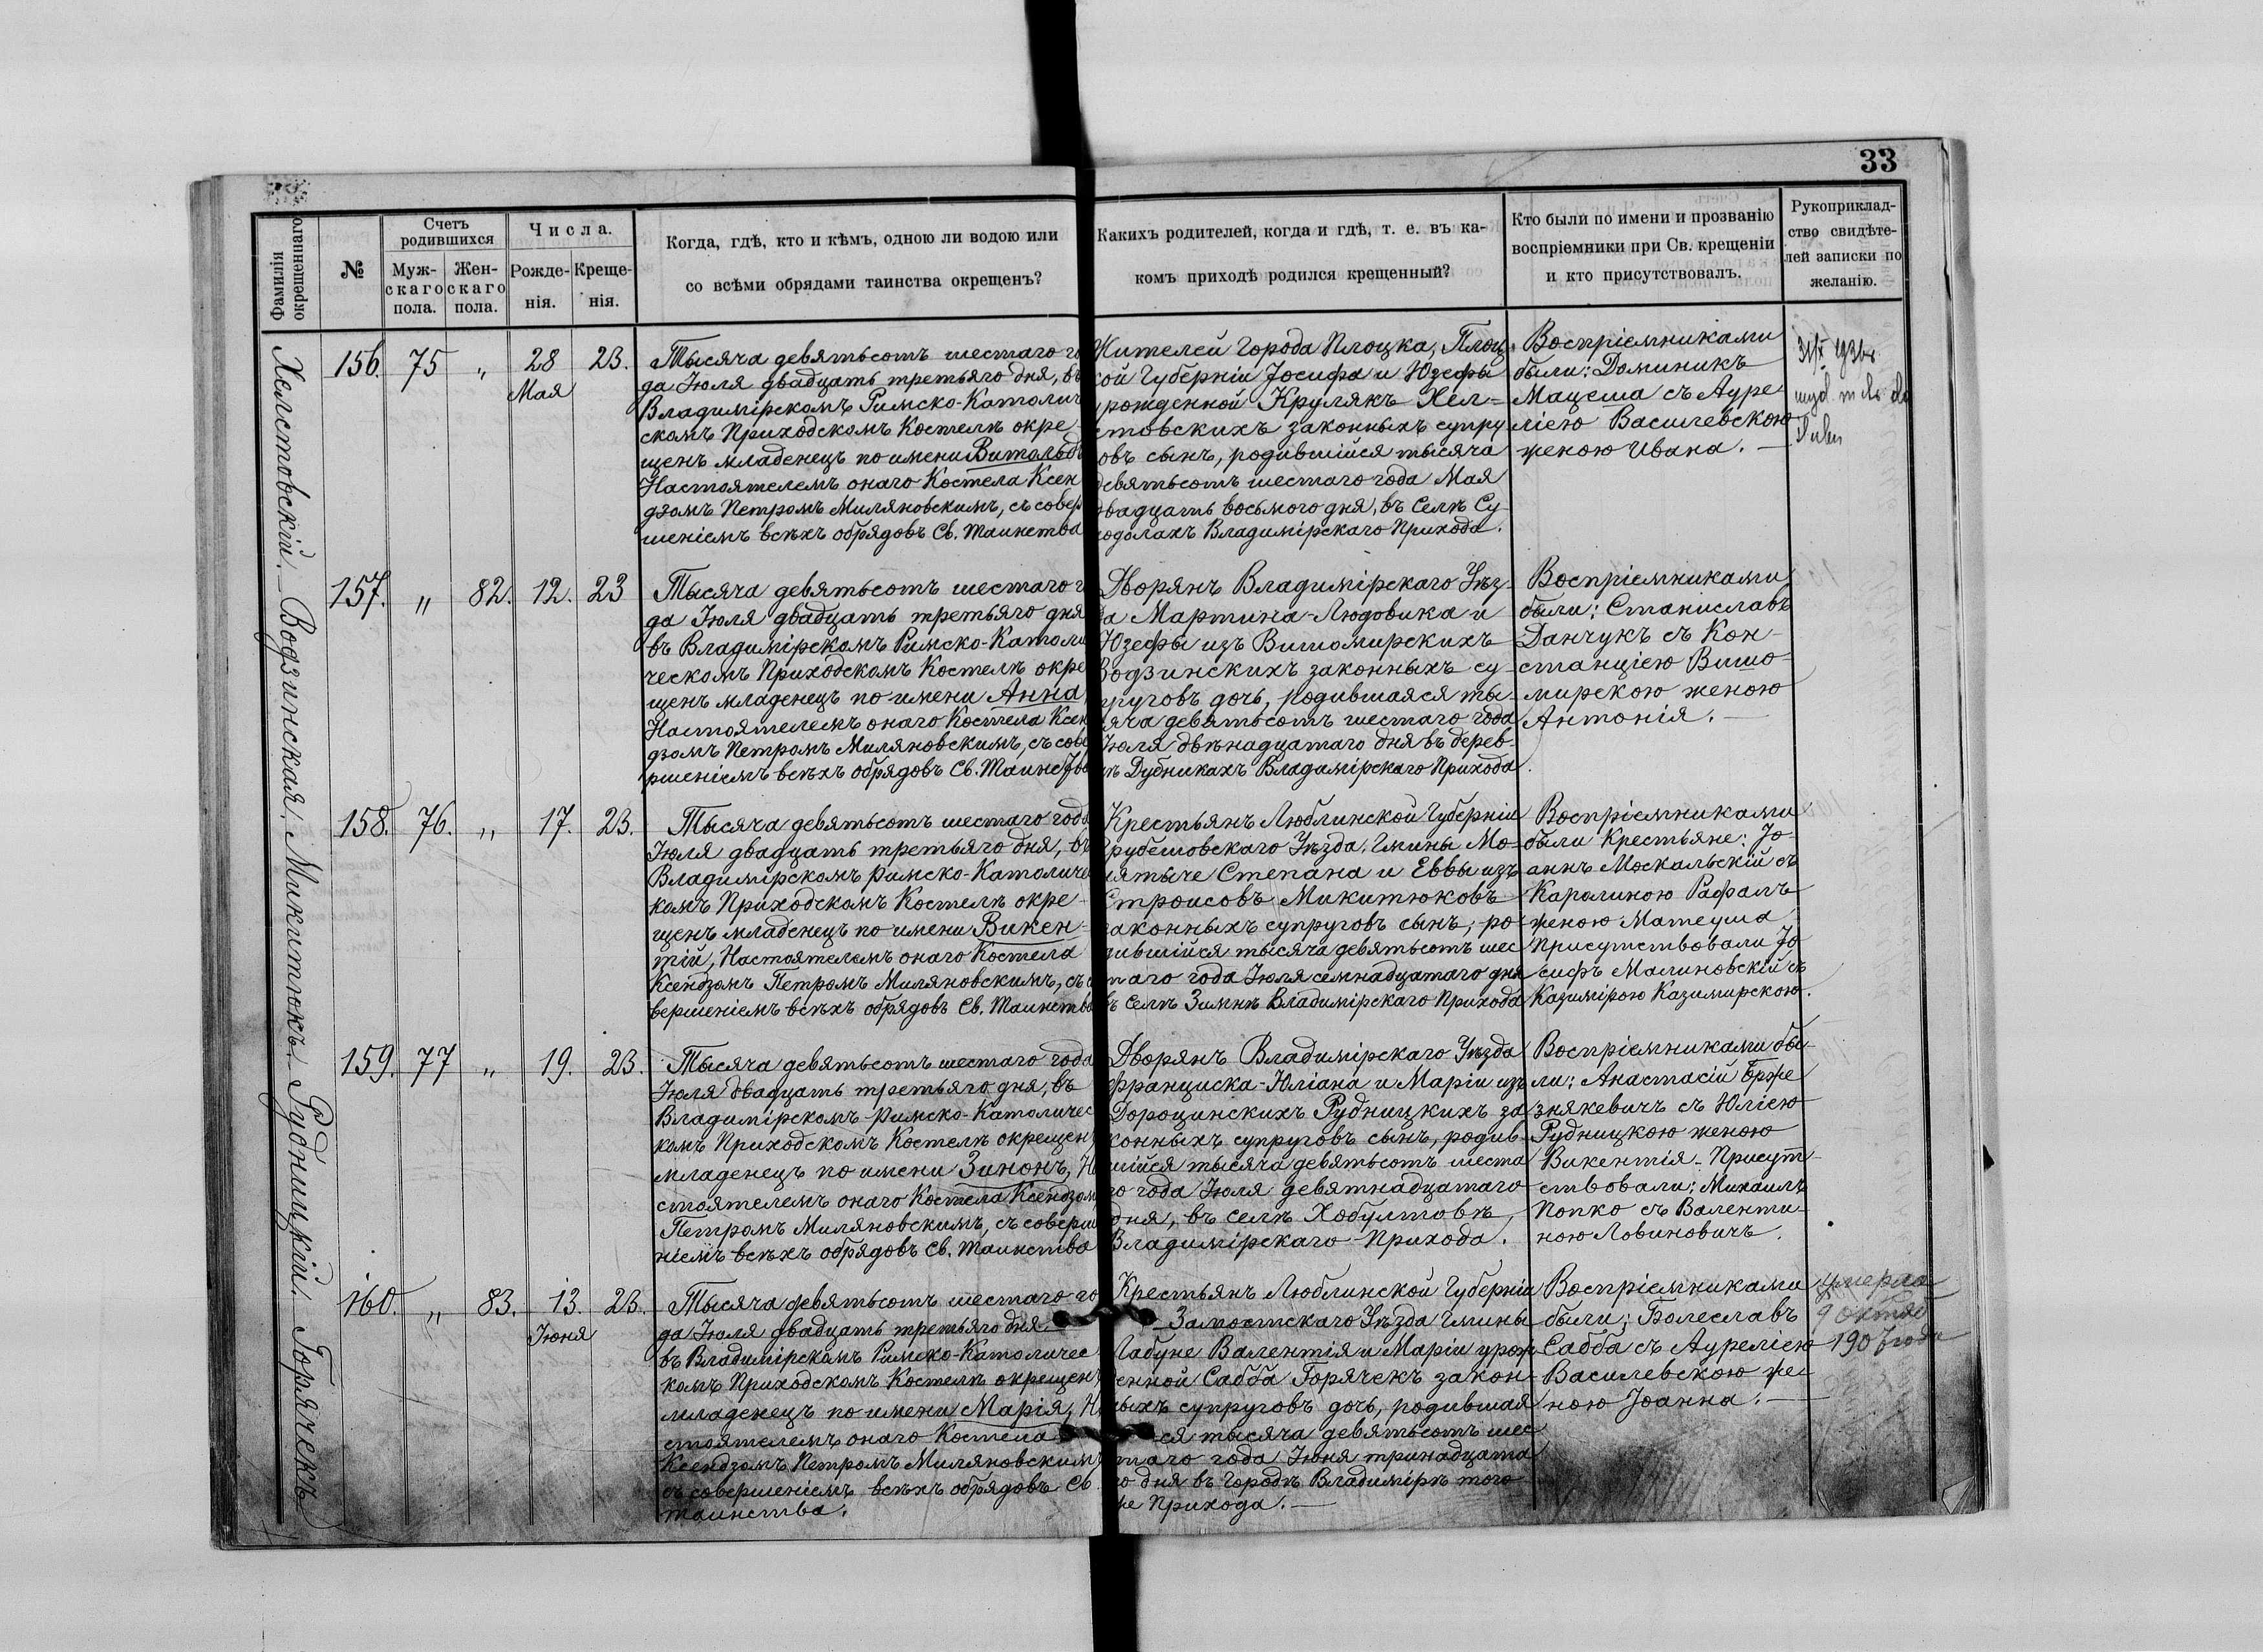 33
Фамилія окрещеннаго
№
Счетъ родившихся
Мужскаго пола.
Женскаго пола.
Числа.
Рожденія.
Крещенія.
Когда, гдѣ, кто и кѣмъ, одною ли водою или
со всѣми обрядами таинства окрещенъ?
Какихъ родителей, когда и гдѣ, т. е. въ ка-
комъ приходѣ родился крещенный?
Кто были по имени и прозванію
воспріемники при Св. крещеніи
и кто присутствовалъ.
Рукоприклад-
ство свидѣте-
лей записки по
желанію.
Хелстовскій. — Водзинская. Микитюкъ. Рудницкій. Горячекъ
156. 75 „ 28 23.
Мая
Тысяча девятьсотъ шестаго го
да Іюля двадцать третьяго дня, въ
Владимірскомъ Римско-Католич
скомъ Приходскомъ Костелѣ окре-
щенъ младенецъ по имени Витольдъ
Настоятелемъ онаго Костела Ксен
дзомъ Петромъ Миляновскимъ, съ совер
шеніемъ всѣхъ обрядовъ Св. Таинства
Жителей Города Плоцка, Плоц
кой Губерніи Іосифа и Юзефы
урожденной Крулякъ Хел-
стовскихъ законныхъ супру
овъ сынъ, родившійся тысяча
девятьсотъ шестаго года Мая
двадцать восьмого дня, въ Селѣ Су-
ходолахъ Владимірскаго Прихода.
Воспріемниками
были: Доминикъ
Мацеша съ Ауре
ліею Василевскою
женою Ивана. —
157. „ 82. 12. 23
Тысяча девятьсотъ шестаго г
да Іюля двадцать третьяго дня
въ Владимірскомъ Римско-Католи
ческомъ Приходскомъ Костелѣ окре
щенъ младенецъ по имени Анна
Настоятелемъ онаго Костела Ксен
дзомъ Петромъ Миляновскимъ, съ сове
ршеніемъ всѣхъ обрядовъ Св. Таинства
Дворянъ Владимірскаго Уѣз-
да Мартина-Людовика и
Юзефы изъ Витомирскихъ
Водзинскихъ законныхъ су-
пруговъ дочь, родившаяся ты-
сяча девятьсотъ шестаго года
Іюля двѣнадцатаго дня въ дерев-
нѣ Дубникахъ Владимірскаго Прихода.
Воспріемниками
были: Станиславъ
Данчукъ съ Кон-
станціею Вито-
мирскою женою
Антонія. —
158. 76. „ 17. 23.
Тысяча девятьсотъ шестаго года
Іюля двадцать третьяго дня, въ
Владимірскомъ Римско-Католичес
комъ Приходскомъ Костелѣ окре-
щенъ младенецъ по имени Викен-
тій, Настоятелемъ онаго Костела
Ксендзомъ Петромъ Миляновскимъ, съ со
вершеніемъ всѣхъ обрядовъ Св. Таинства
Крестьянъ Люблинской Губерніи
Грубешовскаго Уѣзда. Гмины Мо-
нятыче Степана и Еввы изъ
Строисовъ Микитюковъ
законныхъ супруговъ сынъ, ро-
дившійся тысяча девятьсотъ шес
таго года Іюля семнадцатаго дня
въ Селѣ Зимнѣ Владимірскаго Прихода
Воспріемниками
были Крестьяне: Іо-
аннъ Москальскій съ
Каролиною Рафалъ
женою Матеуша
Присутствовали Іо
сифъ Малиновскій съ
Казимірою Казимирскою.
159. 77 „ 19. 23.
Тысяча девятьсотъ шестаго года
Іюля двадцать третьяго дня, въ
Владимірскомъ Римско-Католичес
комъ Приходскомъ Костелѣ окрещенъ
младенецъ по имени Зинонъ, На
стоятелемъ онаго Костела Ксендзом
Петромъ Миляновскимъ, съ соверше
ніемъ всѣхъ обрядовъ Св. Таинства
Дворянъ Владимірскаго Уѣзда
Франциска-Юліана и Маріи изъ
Дорощинскихъ Рудницкихъ за
конныхъ супруговъ сынъ, родив-
шійся тысяча девятьсотъ шеста
го года Іюля девятнадцатаго
дня, въ селѣ Хобултовѣ,
Владимірскаго Прихода.
Воспріемниками бы-
ли: Анастасій Брже
знякевичъ съ Юліею
Рудницкою женою
Викентія. Присут-
ствовали: Михаилъ
Попко съ Валенти-
ною Ловиновичъ.
160. „ 83. 13. 23.
Іюня
Тысяча девятьсотъ шестаго го
да Іюля двадцать третьяго дня
въ Владимірскомъ Римско-Католичес
комъ Приходскомъ Костелѣ окрещенъ
младенецъ по имени Марія, На
стоятелемъ онаго Костела
Ксендзомъ Петромъ Миляновским
съ совершеніемъ всѣхъ обрядовъ Св.
Таинства.
Крестьянъ Люблинской Губерніи
Замостскаго Уѣзда Гмины
Лабуне Валентія и Маріи урож
денной Сабба Горячекъ закон-
ныхъ супруговъ дочь, родившая
ся тысяча девятьсотъ шес
таго года Іюня тринадцата
го дня въ Городѣ Владимірѣ того
же Прихода. —
Воспріемниками
были: Болеславъ
Сабба съ Ауреліею
Василевскою же
ною Іоанна. —
умерла
9 октяб
1907 года